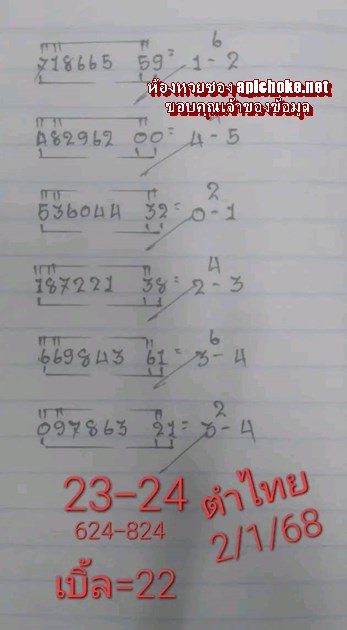 6
718665 59 = 1-2
ห้องหวยซอง apichoke.net
ขอบคุณเจ้าของข้อมูล
482962 00 = 4-5
2
536044 32 = 0-1
4
187221 38 = 2-3
6
669843 61 = 3-4
2
097863 21 = 3-4
23-24 ตำไทย
624-824 2/1/68
เบิ้ล=22